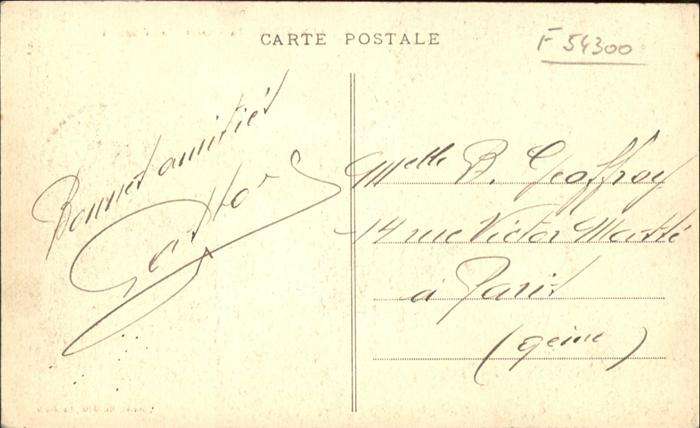 CARTE POSTALE
F 54300
Bonnes amitiés
Melle B. Geoffroy
14 rue Victor Massé
à Paris
(9eme)